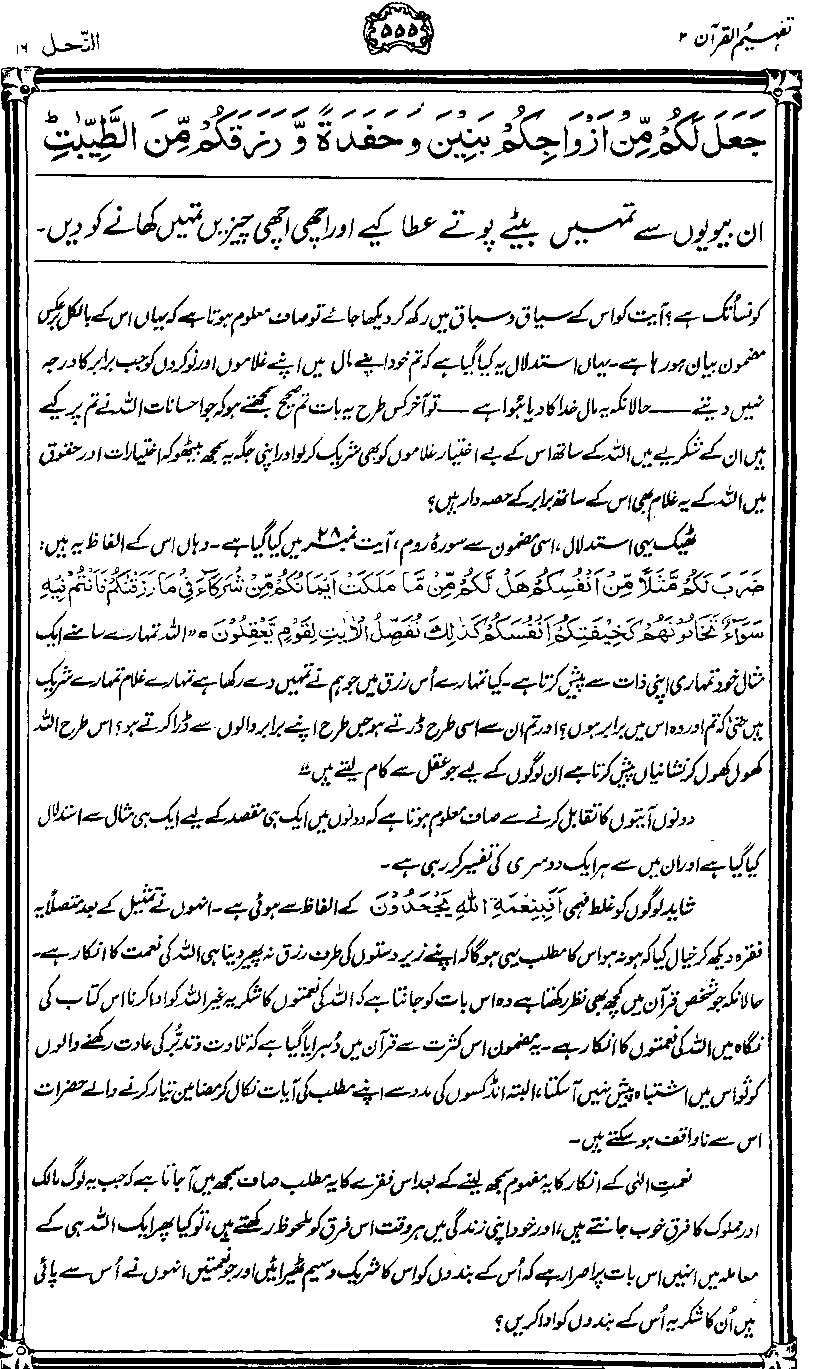 تفہیم القرآن ۲
۵۵۵
النّحل ۱۶
جَعَلَ لَكُمْ مِّنْ اَزْوَاجِكُمْ بَنِيْنَ وَحَفَدَةً وَّ رَزَقَكُمْ مِّنَ الطَّيِّبٰتِ ؕ
ان بیویوں سے تمہیں بیٹے پوتے عطا کیے اور اچھی اچھی چیزیں تمہیں کھانے کو دیں۔
کونسا تُک ہے؟ آیت کو اس کے سیاق و سباق میں رکھ کر دیکھا جائے تو صاف معلوم ہوتا ہے کہ یہاں اس کے بالکل برعکس
مضمون بیان ہو رہا ہے۔ یہاں استدلال یہ کیا گیا ہے کہ تم خود اپنے مال میں اپنے غلاموں اور نوکروں کو جب برابر کا درجہ
نہیں دیتے —— حالانکہ یہ مال خدا کا دیا ہُوا ہے —— تو آخر کس طرح یہ بات تم صحیح سمجھتے ہو کہ جو احسانات اللہ نے تم پر کیے
ہیں ان کے شکریے میں اللہ کے ساتھ اس کے بے اختیار غلاموں کو بھی شریک کر لو اور اپنی جگہ یہ سمجھ بیٹھو کہ اختیارات اور حقوق
میں اللہ کے یہ غلام بھی اس کے ساتھ برابر کے حصہ دار ہیں؟
ٹھیک یہی استدلال، اسی مضمون سے سورۂ روم، آیت نمبر ۲۸ میں کیا گیا ہے۔ وہاں اس کے الفاظ یہ ہیں:
ضَرَبَ لَكُمْ مَّثَلًا مِّنْ اَنْفُسِكُمْ هَلْ لَّكُمْ مِّنْ مَّا مَلَكَتْ اَيْمَانُكُمْ مِّنْ شُرَكَآءَ فِيْ مَا رَزَقْنٰكُمْ فَاَنْتُمْ فِيْهِ
سَوَآءٌ تَخَافُوْنَهُمْ كَخِيْفَتِكُمْ اَنْفُسَكُمْ كَذٰلِكَ نُفَصِّلُ الْاٰيٰتِ لِقَوْمٍ يَّعْقِلُوْنَ ہ ”اللہ تمہارے سامنے ایک
مثال خود تمہاری اپنی ذات سے پیش کرتا ہے۔ کیا تمہارے اُس رزق میں جو ہم نے تمہیں دے رکھا ہے تمہارے غلام تمہارے شریک
ہیں حتیٰ کہ تم اور وہ اس میں برابر ہوں؟ اور تم ان سے اسی طرح ڈرتے ہو جس طرح اپنے برابر والوں سے ڈرا کرتے ہو؟ اس طرح اللہ
کھول کھول کر نشانیاں پیش کرتا ہے ان لوگوں کے لیے جو عقل سے کام لیتے ہیں“
دونوں آیتوں کا تقابل کرنے سے صاف معلوم ہوتا ہے کہ دونوں میں ایک ہی مقصد کے لیے ایک ہی مثال سے استدلال
کیا گیا ہے اور ان میں سے ہر ایک دوسری کی تفسیر کر رہی ہے۔
شاید لوگوں کو غلط فہمی اَفَبِنِعْمَةِ اللهِ يَجْحَدُوْنَ کے الفاظ سے ہوئی ہے۔ انہوں نے تمثیل کے بعد متصلًا یہ
فقرہ دیکھ کر خیال کیا کہ ہو نہ ہو اس کا مطلب یہی ہوگا کہ اپنے زیر دستوں کی طرف رزق نہ پھیر دینا ہی اللہ کی نعمت کا انکار ہے۔
حالانکہ جو شخص قرآن میں کچھ بھی نظر رکھتا ہے وہ اس بات کو جانتا ہے کہ اللہ کی نعمتوں کا شکریہ غیر اللہ کو ادا کرنا اس کتاب کی
نگاہ میں اللہ کی نعمتوں کا انکار ہے۔ یہ مضمون اس کثرت سے قرآن میں دُہرایا گیا ہے کہ تلاوت و تدبُّر کی عادت رکھنے والوں
کو تو اس میں اشتباہ پیش نہیں آ سکتا، البتہ انڈکسوں کی مدد سے اپنے مطلب کی آیات نکال کر مضامین تیار کرنے والے حضرات
اس سے ناواقف ہو سکتے ہیں۔
نعمتِ الٰہی کے انکار کا یہ مفہوم سمجھ لینے کے بعد اس فقرے کا یہ مطلب صاف سمجھ میں آ جاتا ہے کہ جب یہ لوگ مالک
اور مملوک کا فرق خوب جانتے ہیں، اور خود اپنی زندگی میں ہر وقت اس فرق کو ملحوظ رکھتے ہیں، تو کیا پھر ایک اللہ ہی کے
معاملہ میں انہیں اس بات پر اصرار ہے کہ اُس کے بندوں کو اس کا شریک و سہیم ٹھیرائیں اور جو نعمتیں انہوں نے اُس سے پائی
ہیں اُن کا شکریہ اُس کے بندوں کو ادا کریں؟